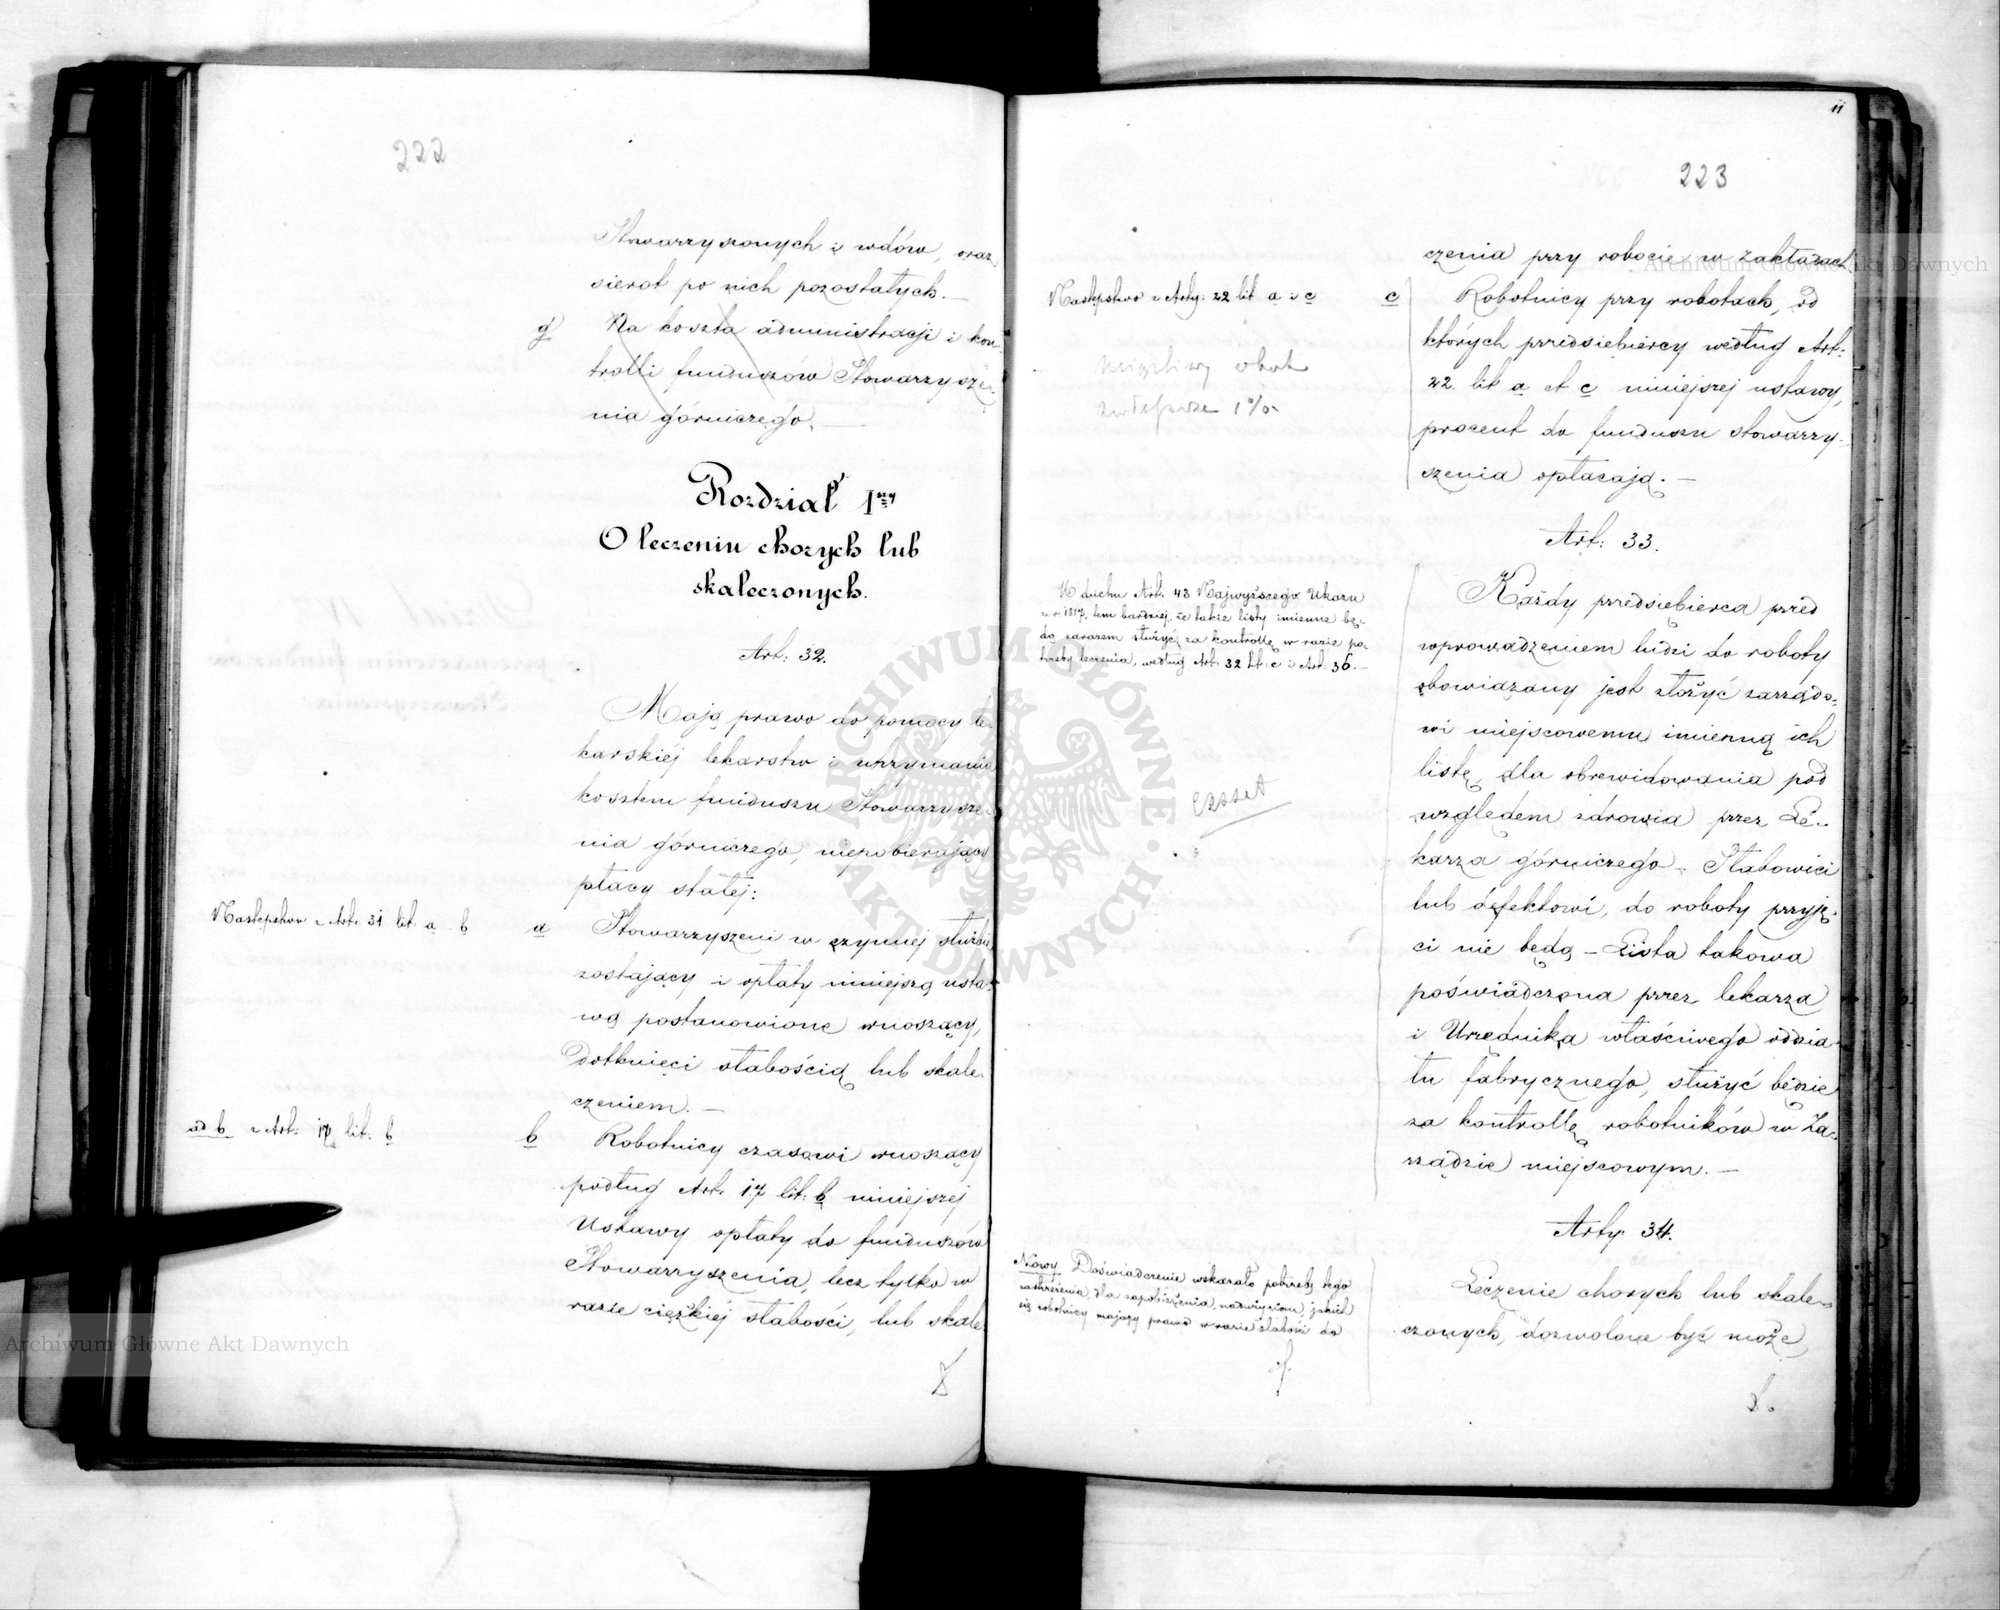 222
Stowarzyszonych i wdów, oraz
sierot po nich pozostałych. —
g) Na koszta administracji i kon-
trolli funduszow Stowarzysze-
nia górniczego. —
Rozdział 1szy
O leczeniu chorych lub
skaleczonych.
Art: 32.
Mają prawo do pomocy le-
karskiéj lekarstw i utrzymania
kosztem funduszu Stowarzysze-
nia górniczego, niepobierający
płacy stałej:
Następstwo z Art. 31 lit. a. b
a Stowarzyszeni w czynnej służbie
zostający i opłaty niniejszą usta-
wą postanowione wnoszący,
dotknięci słabością lub skale-
czeniem. —
ad b z Art. 17 lit: b
b Robotnicy czasowi wnoszący
podług Art. 17 lit: b niniejszej
Ustawy opłaty do funduszów
Stowarzyszenia, lecz tylko w
razie ciężkiéj słabości, lub skale-
11
223
czenia przy robocie w zakładach.
Następstwo z Arty: 22 lit a i c
c Robotnicy przy robotach, od
których przedsiebiercy według Art:
22. lit a et c niniejszej ustawy,
procent do funduszu stowarzy-
szenia opłacają. —
1%
Art: 33.
W duchu Art. 43 Najwyższego Ukazu
z r. 1817, tem bardziej, że takie listy imienne bę-
dą zarazem służyć za kontrollę w razie po-
trzeby leczenia, według Art. 32 lit. c i Art. 36. —
Każdy przedsiębierca przed
wprowadzeniem ludzi do roboty
obowiązany jest złożyć zarządo-
wi miejscowemu imienną ich
listę, dla obrewidowania pod
względem zdrowia przez Le-
karza górniczego. Słabowici
lub defektowi, do roboty przyję-
ci nie będą – Lista takowa
poświadczona przez lekarza
i Urzędnika właściwego oddzia-
łu fabrycznego, służyć będzie
za kontrollę robotników w Za-
rządzie miejscowym. —
Arty 34.
Nowy Doświadczenie wskazało potrzebę tego
zastrzeżenia, dla zapobieżenia nadużyciom jakich
się robotnicy mający prawo w razie słabości do
Leczenie chorych lub skale-
czonych, dozwolone być może,
ARCHIWUM GŁÓWNE AKT DAWNYCH
Archiwum Główne Akt Dawnych
Archiwum Główne Akt Dawnych